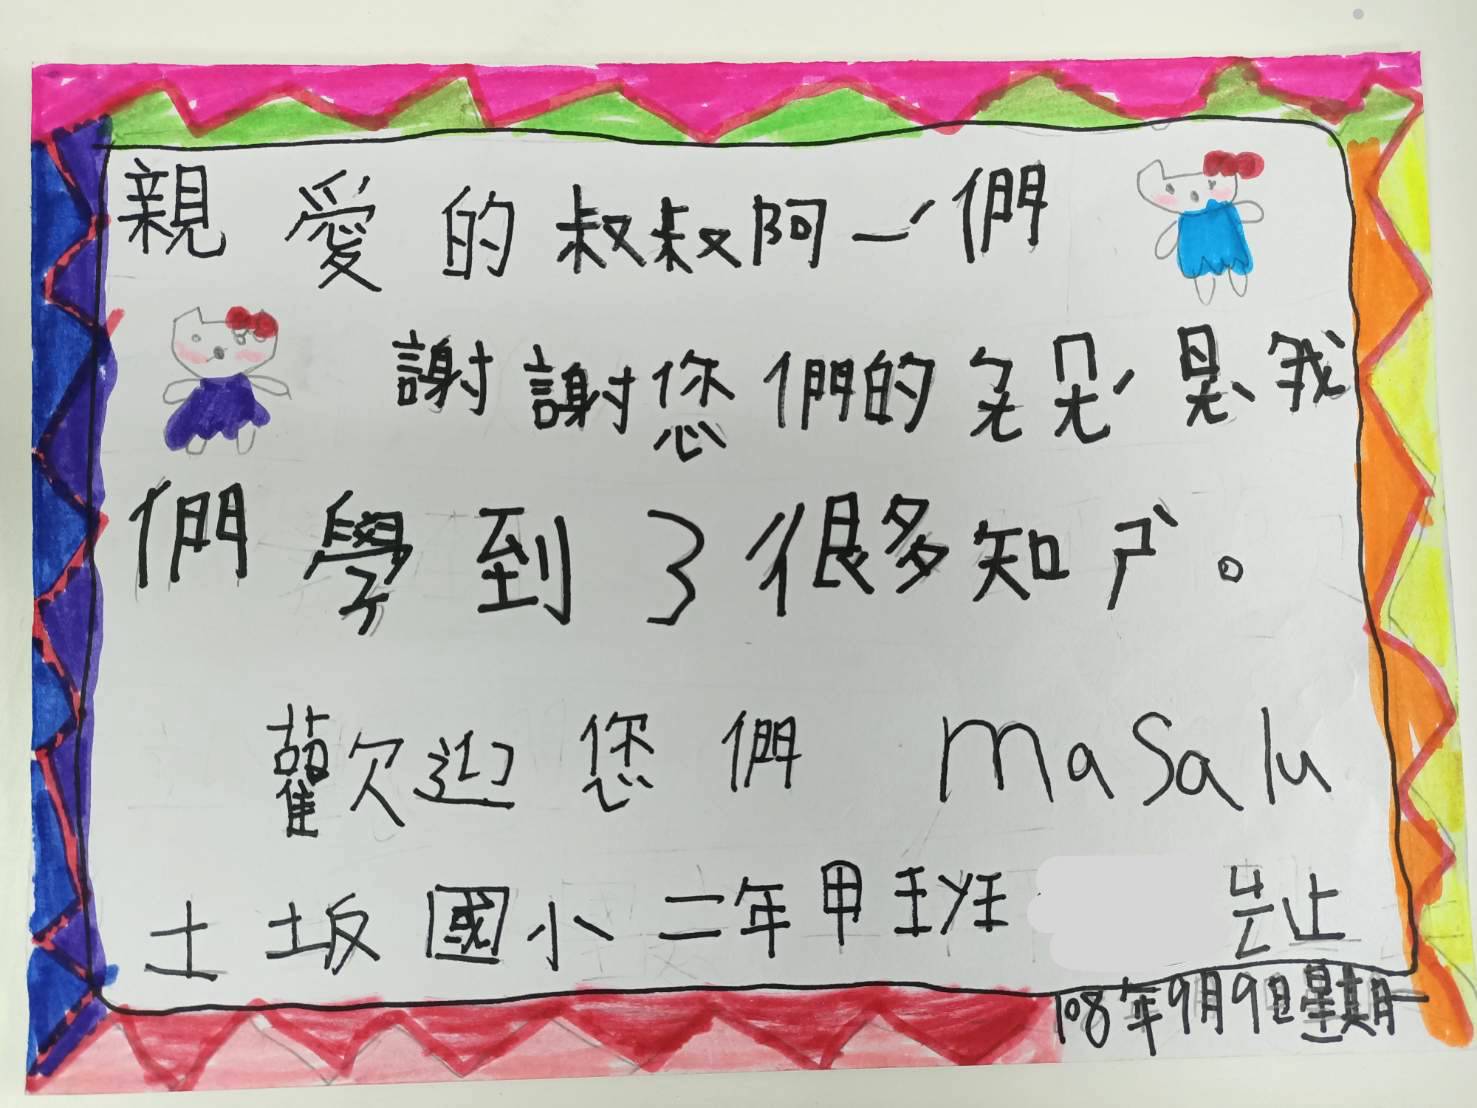 親愛的叔叔阿ㄧˊ們
謝謝您們的 我
們學到了很多知ㄕˋ。
歡迎您們 masalu
土坂國小二年甲班
108年9月9日星期一